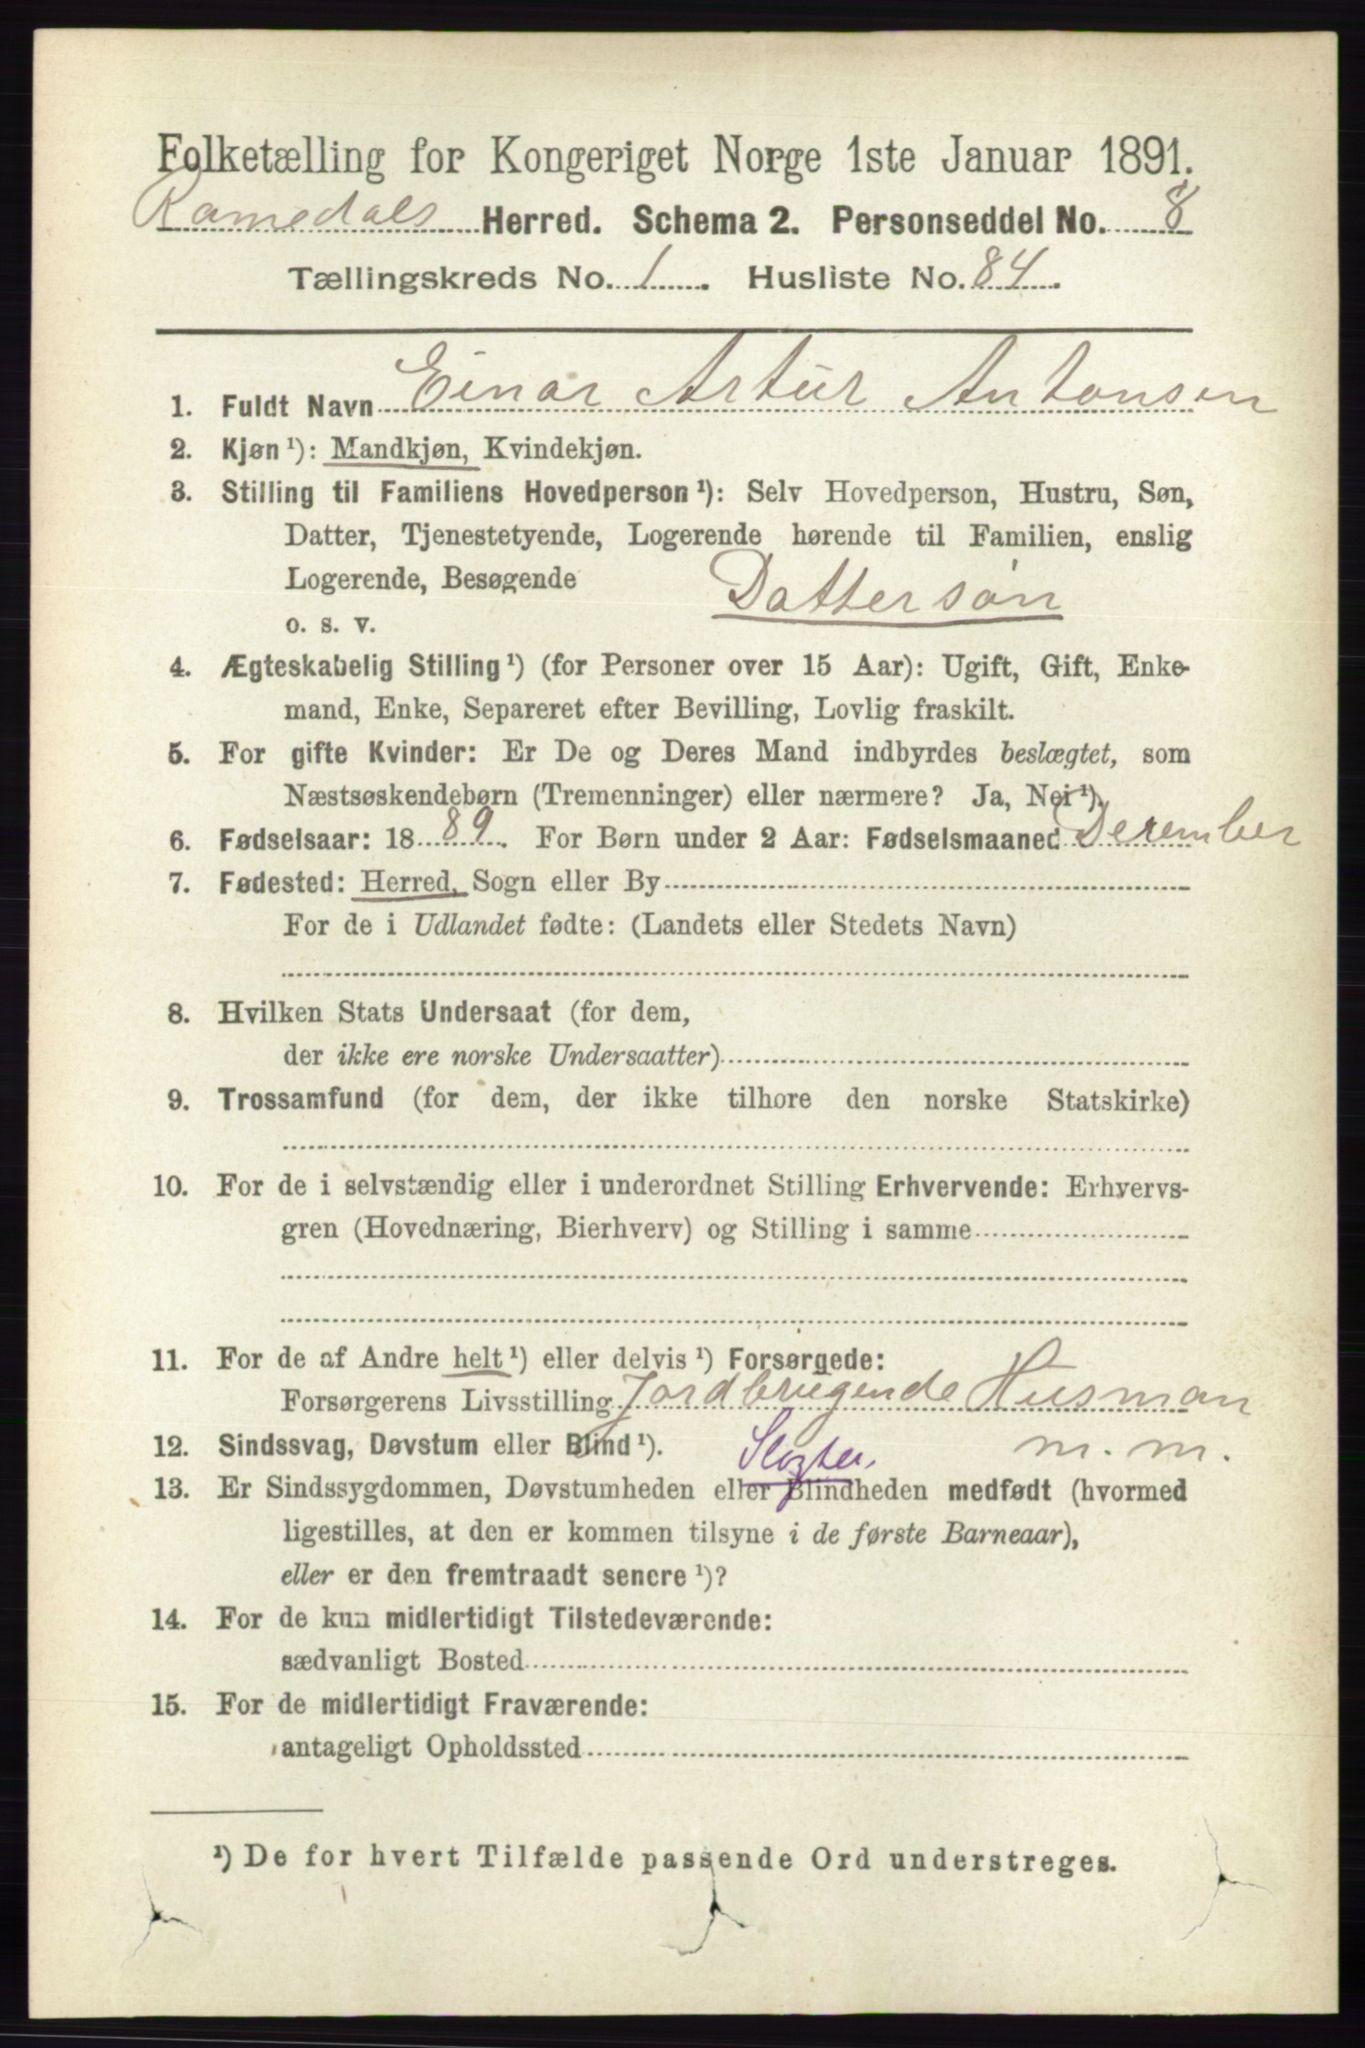 Folketælling for Kongeriget Norge 1ste Januar 1891.
Romedals Herred. Schema 2. Personseddel No. 8
Tællingskreds No. 1. Husliste No. 84.
1. Fuldt Navn Einar Artur Antonsen
2. Kjøn ¹): Mandkjøn, Kvindekjøn.
3. Stilling til Familiens Hovedperson ¹): Selv Hovedperson, Hustru, Søn,
Datter, Tjenestetyende, Logerende hørende til Familien, enslig
Logerende, Besøgende
o. s. v. Dattersøn
4. Ægteskabelig Stilling ¹) (for Personer over 15 Aar): Ugift, Gift, Enke-
mand, Enke, Separeret efter Bevilling, Lovlig fraskilt.
5. For gifte Kvinder: Er De og Deres Mand indbyrdes beslægtet, som
Næstsøskendebørn (Tremenninger) eller nærmere? Ja, Nei ¹).
6. Fødselsaar: 1889. For Børn under 2 Aar: Fødselsmaaned December
7. Fødested: Herred, Sogn eller By
For de i Udlandet fødte: (Landets eller Stedets Navn)
8. Hvilken Stats Undersaat (for dem,
der ikke ere norske Undersaatter)
9. Trossamfund (for dem, der ikke tilhøre den norske Statskirke)
10. For de i selvstændig eller i underordnet Stilling Erhvervende: Erhvervs-
gren (Hovednæring, Bierhverv) og Stilling i samme
11. For de af Andre helt ¹) eller delvis ¹) Forsørgede:
Forsørgerens Livsstilling Jordbrugende Husman
12. Sindssvag, Døvstum eller Blind ¹). m. m.
13. Er Sindssygdommen, Døvstumheden eller Blindheden medfødt (hvormed
ligestilles, at den er kommen tilsyne i de første Barneaar),
eller er den fremtraadt senere ¹)?
14. For de kun midlertidigt Tilstedeværende:
sædvanligt Bosted
15. For de midlertidigt Fraværende:
antageligt Opholdssted
¹) De for hvert Tilfælde passende Ord understreges.